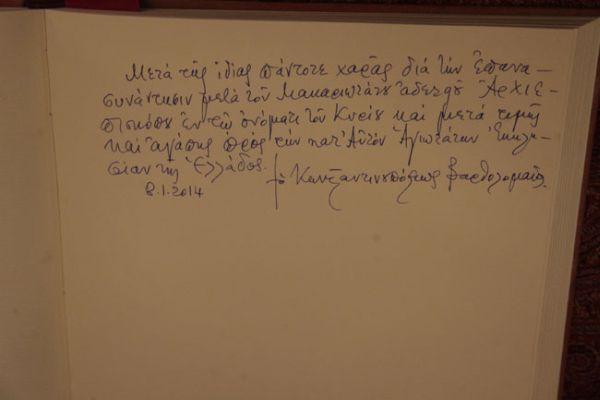 Μετά τῆς ἰδίας πάντοτε χαρᾶς διά τήν ἐπανα-
συνάντησιν μετά τοῦ Μακαριωτάτου ἀδελφοῦ Ἀρχιε-
πισκόπου ἐν τῷ ὀνόματι τοῦ Κυρίου καί μετά τιμῆς
καί ἀγάπης πρός τήν κατ' Αὐτόν Ἁγιωτάτην Ἐκκλη-
σίαν τῆς Ἑλλάδος.
8.1.2014 † ὁ Κωνσταντινουπόλεως Βαρθολομαῖος